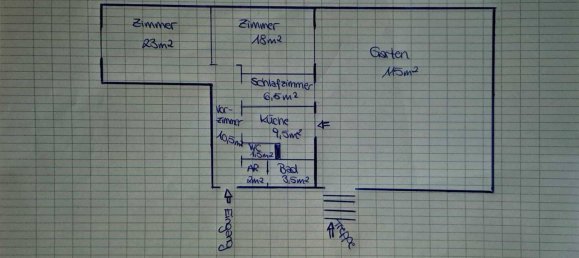 Zimmer
23m²
Zimmer
18m²
Garten
115m²
Schlafzimmer
6,5m²
Vor-
zimmer
10,5m²
Küche
9,5m²
WC
1,5m²
AR
2m²
Bad
3,5m²
Eingang
Treppe